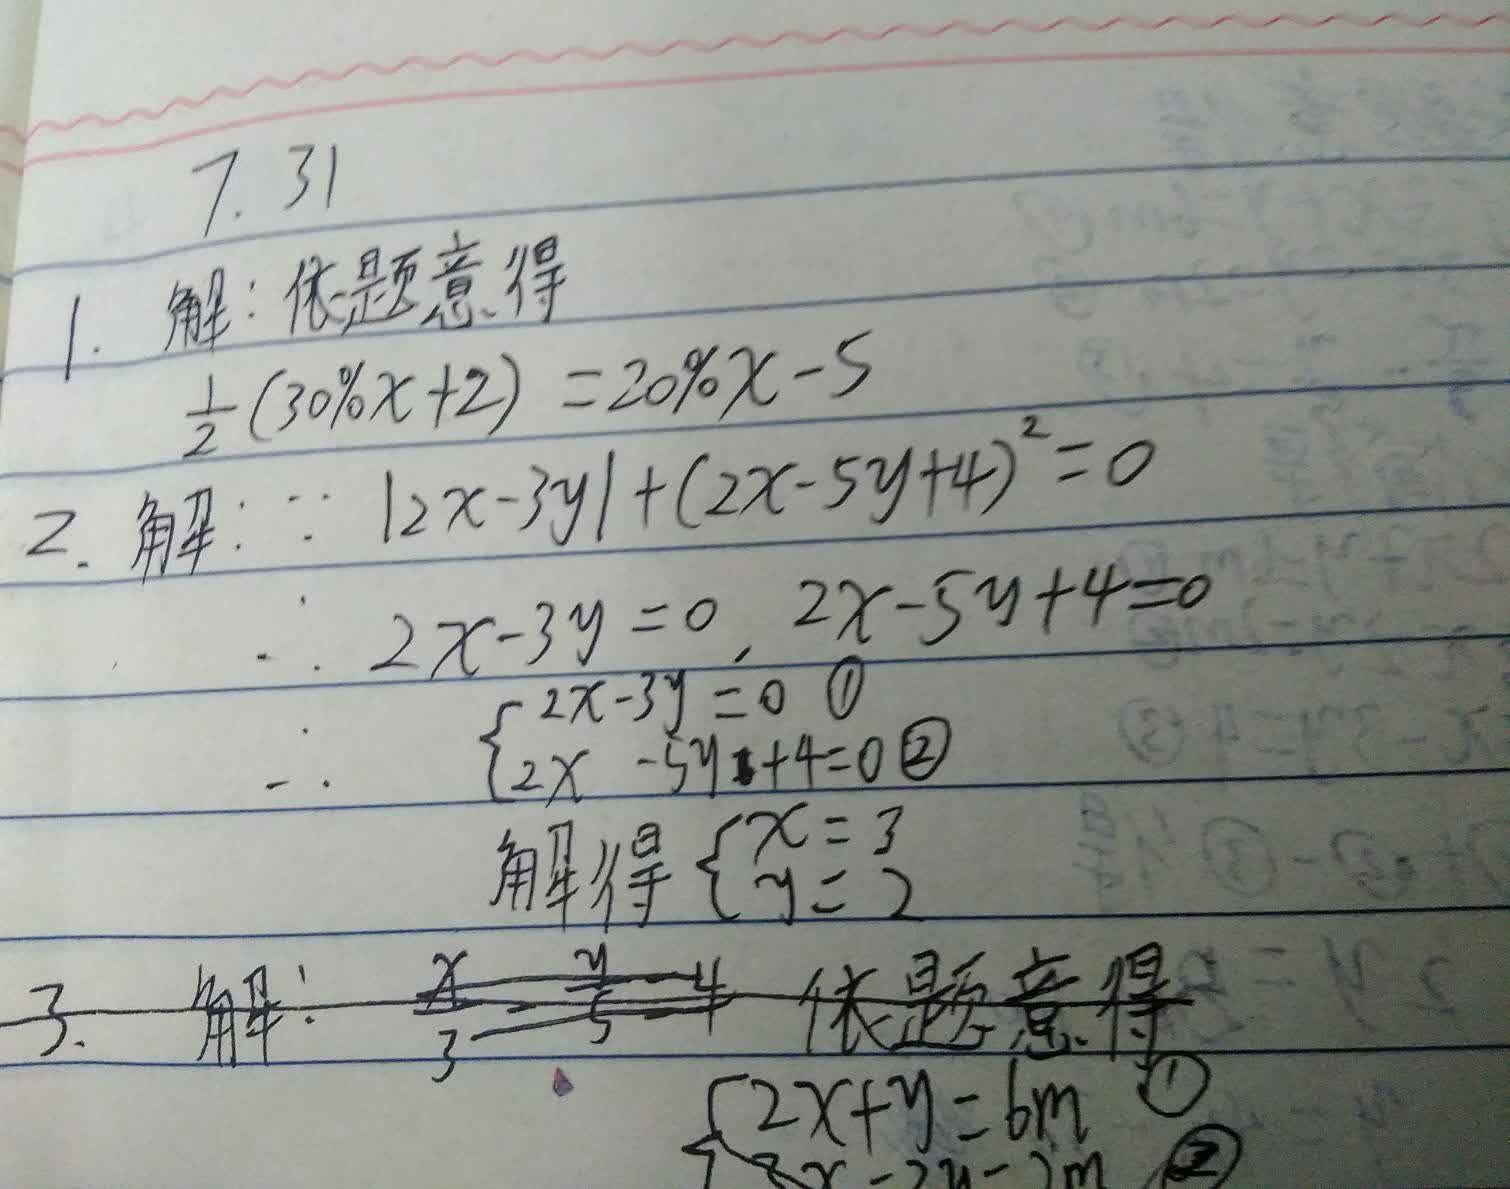 7.31
1. 解:依题意得
½(30%x+2)=20%x-5
2. 解:∵ |2x-3y|+(2x-5y+4)²=0
∴ 2x-3y=0, 2x-5y+4=0
∴ {2x-3y=0 ①
2x -5y+4=0 ②
解得 {x=3
y=2
3. 解: 依题意得
{2x+y=6m ①